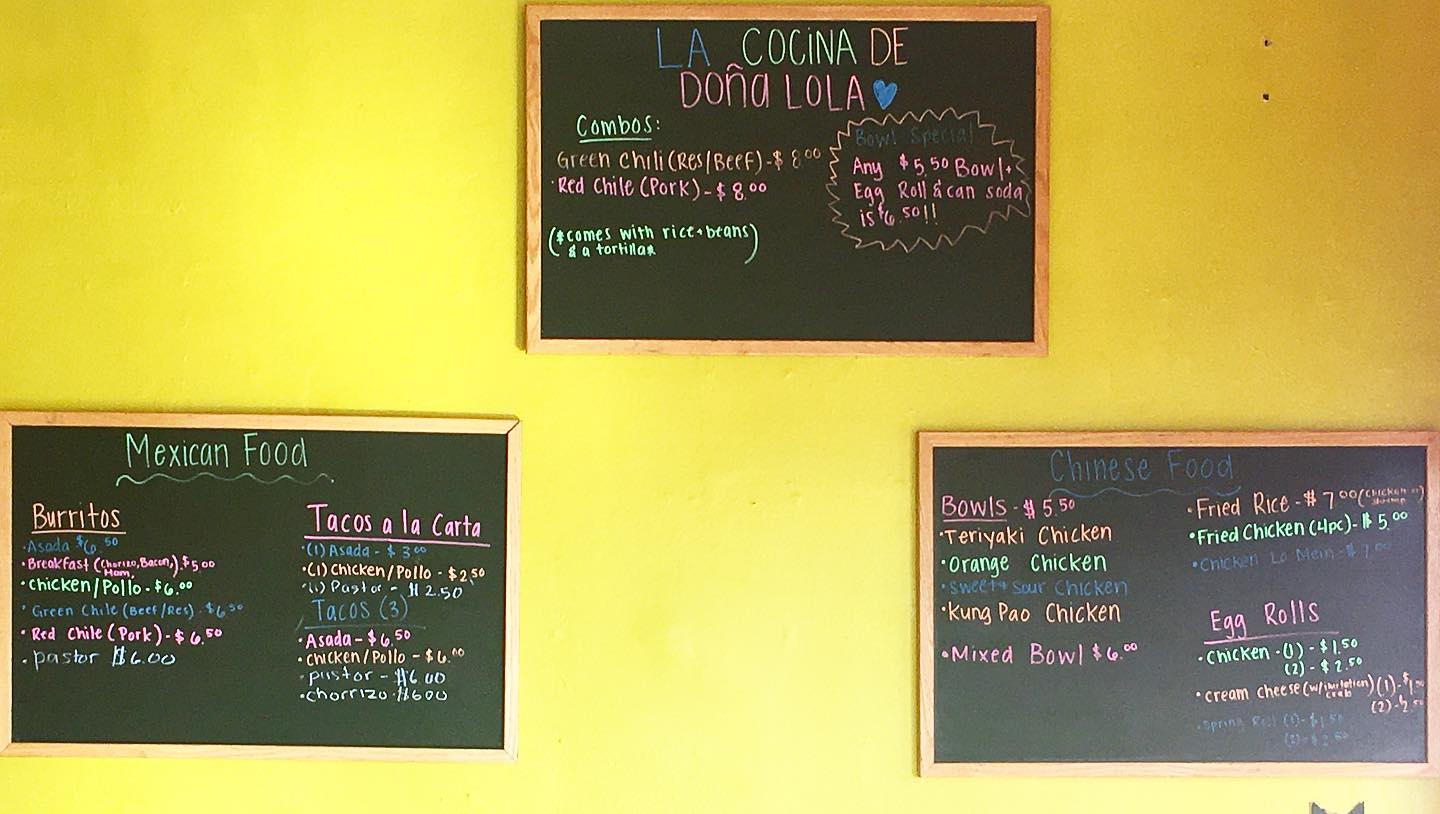 LA COCINA DE
DOña LOLA
Combos:
Green Chili (Res/Beef) - $ 8.00
Red Chile (Pork) - $ 8.00
(*comes with rice + beans
& a tortilla*)
Bowl Special
Any $5.50 Bowl +
Egg Roll & can soda
is $6.50!!
Mexican Food
Burritos
·Asada $6.50
·Breakfast (Chorizo, Bacon, Ham,) $5.00
·Chicken/Pollo - $6.00
·Green Chile (Beef/Res) - $6.50
·Red Chile (Pork) - $6.50
·pastor $6.00
Tacos a la Carta
·(1) Asada - $3.00
·(1) Chicken/Pollo - $2.50
·(1) Pastor - $2.50
Tacos (3)
·Asada - $6.50
·Chicken/Pollo - $6.00
·pastor - $6.00
·chorrizo - $600
Chinese Food
Bowls - $5.50
·Teriyaki Chicken
·Orange Chicken
·Sweet + Sour Chicken
·Kung Pao Chicken
·Mixed Bowl $6.00
·Fried Rice - $7.00 (Chicken or shrimp)
·Fried Chicken (4pc) - $5.00
·Chicken Lo Mein - $7.00
Egg Rolls
·Chicken - (1) - $1.50
(2) - $2.50
·cream cheese (w/imitation crab) (1) - $1.50
(2) - $2.50
·Spring Roll (1) - $1.50
(2) - $2.50